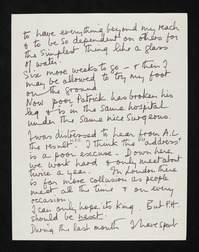 to have everything beyond my reach
& to be so dependent on others for
the simplest thing like a glass
of water.
Six more weeks to go - & then I
may be allowed to try my foot
on the ground
Now poor Patrick has broken his
leg & is in the same hospital
under the same nice surgeons.
I was distressed to hear from A.C.
the result. I think the "address"
is a poor excuse - Down here
we work hard & only meet about
twice a year. In London there
is far more collusion as people
meet all the time & on every
occasion.
I can only hope its King. But P.A.
should be next.
During the last month I have spent